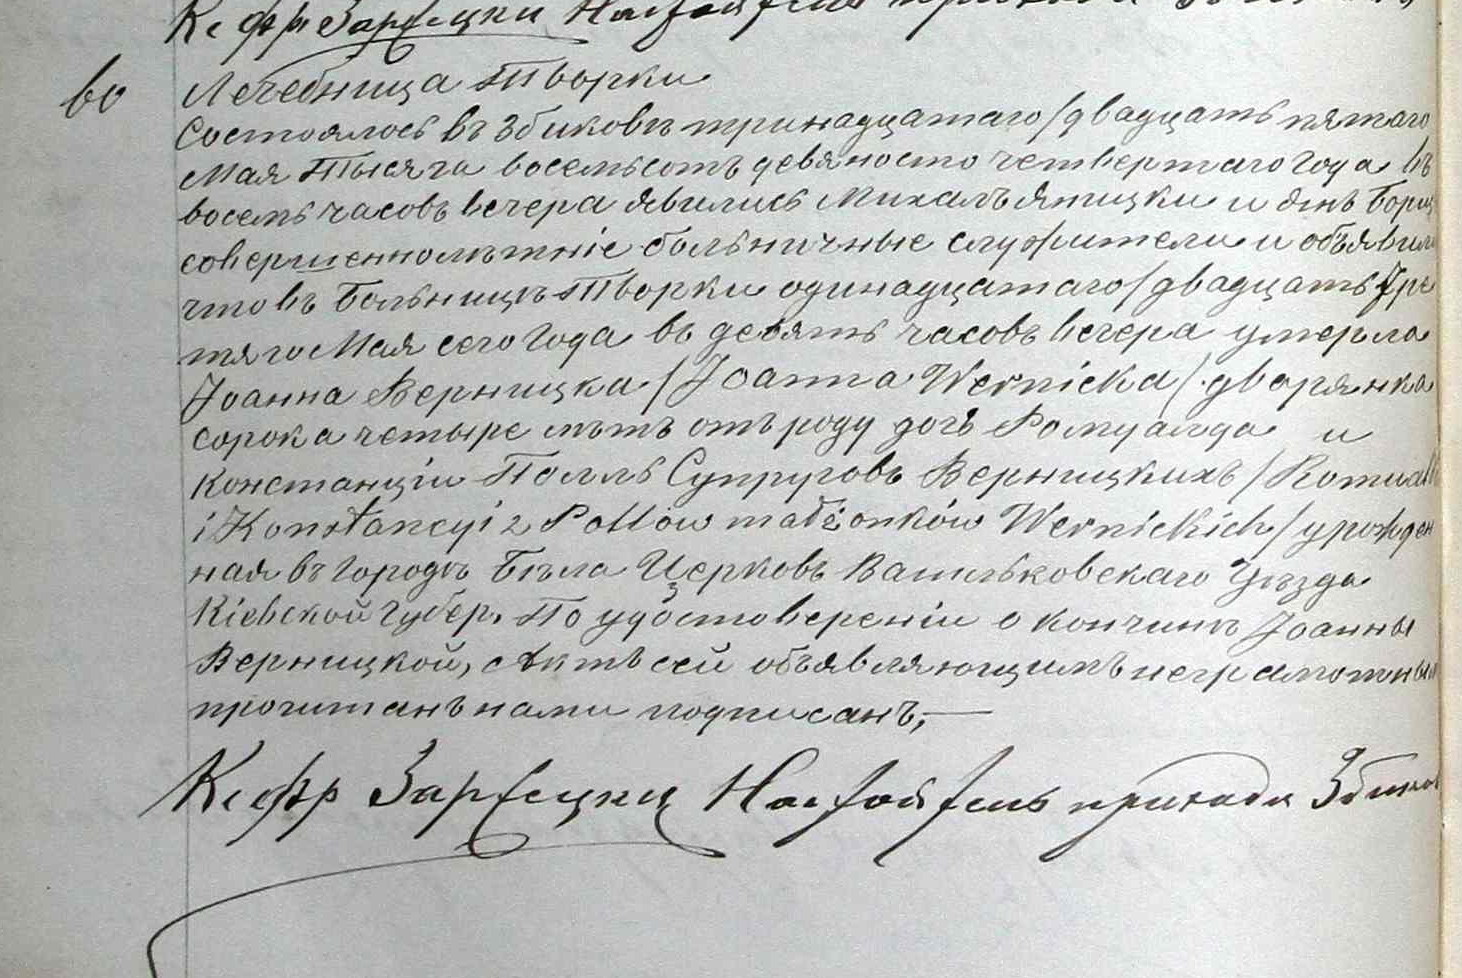 Кс фр Зарѣецки Настоятель прихода
60
Лечебница Творки
Состоялось въ Збиковѣ тринадцатаго/двадцать пятаго
Мая Тысяча восемьсотъ девяносто четвертаго года въ
восемь часовъ вечера явились Михалъ Яницки и
совершеннолѣтніе больничные служители и объявили
что въ Больницѣ Творки одинадцатаго/двадцать Тре
тяго Мая сего года въ девять часовъ вечера умерла
Іоанна Верницка /Joanna Wernicka/ дворянка
сорока четыре лѣтъ отъ роду дочь Ромуальда и
Констанціи Поллъ Супруговъ Верницкихъ /Romualda
i Konstancyi z Pollów małżonków Wernickich/ урожден
ная въ городѣ Бѣла Церковь Васильковскаго Уѣзда
Кіевской губер. По удостовереніи о кончинѣ Іоанны
Верницкой, Актъ сей объявляющимъ неграмотным
прочитанъ нами подписанъ,—
Кс фр Зарѣецки Настоятель прихода Збиков